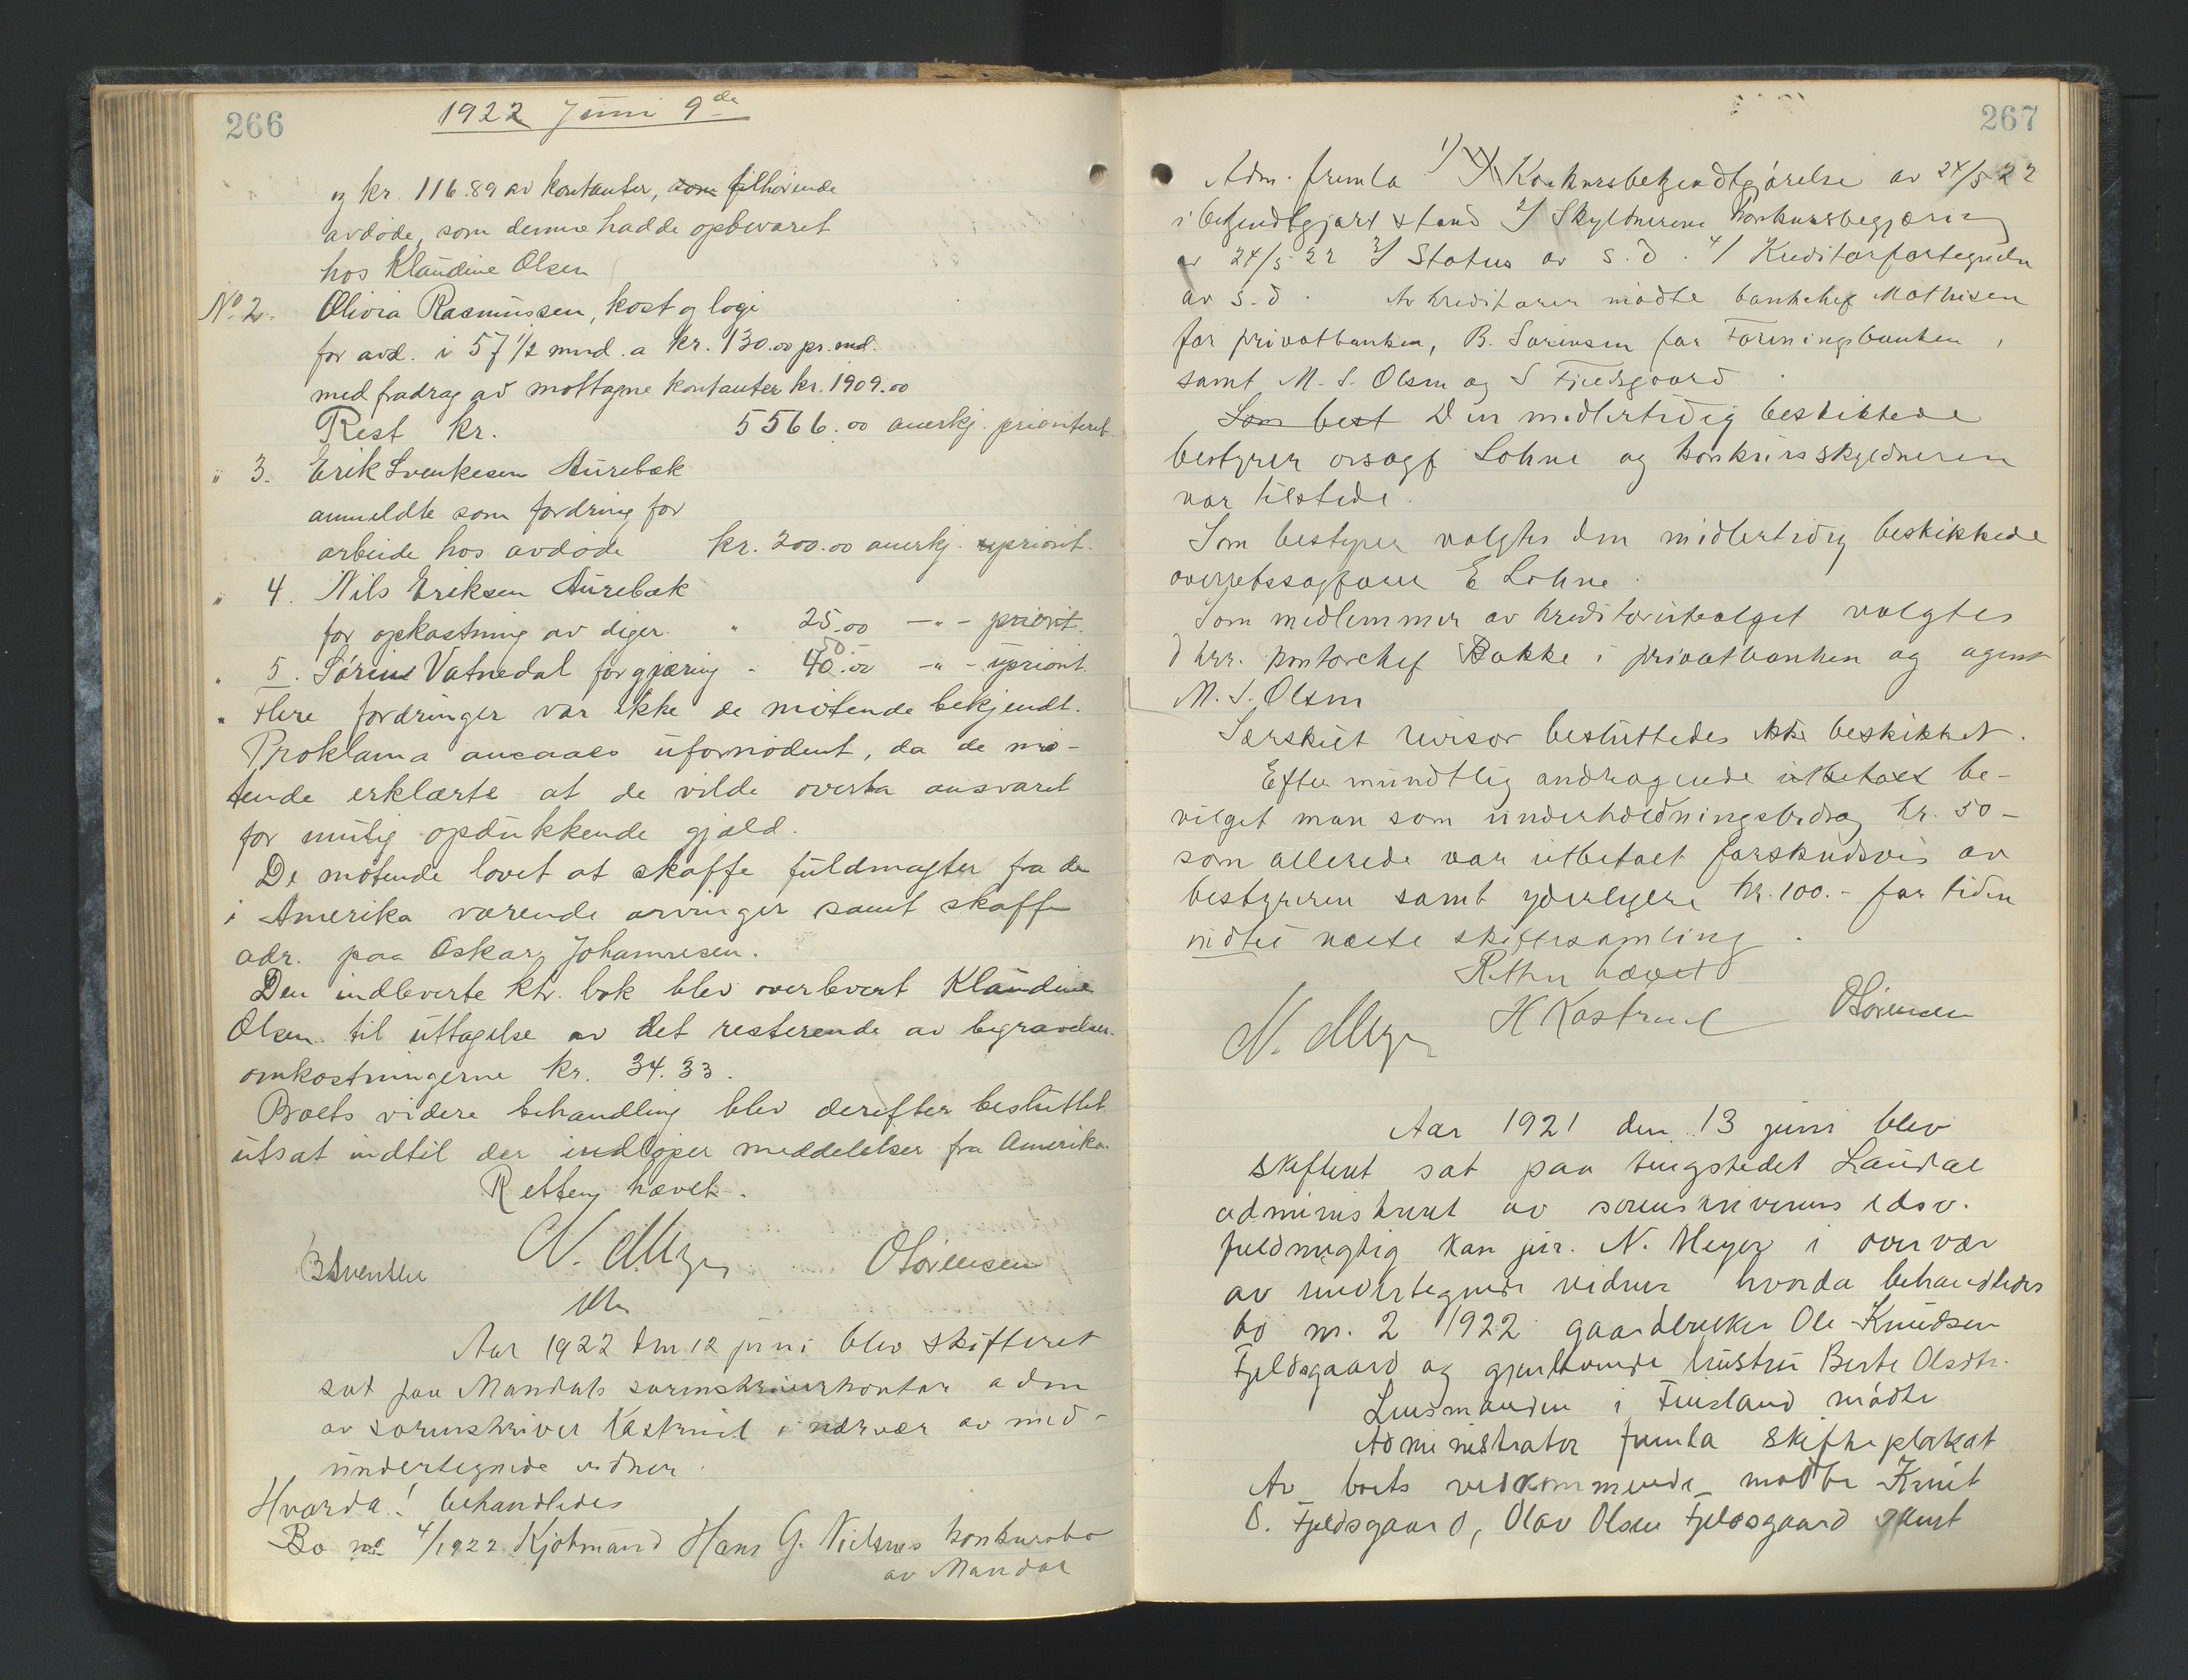 266
1922 Juni 9de
og kr. 116.89 av kontanter, som tilhørende
avdøde, som denne hadde opbevaret
hos Klaudine Olsen
No. 2. Olivia Rasmussen, kost og logi
for avd. i 57 1/2 mnd. a kr. 130.00 pr. md.
med fradrag av mottagne kontanter kr. 1909.00
Rest kr. 5566.00 anerkj. prioriteret.
" 3. Erik Svenkesen Aurebæk
anmeldte som fordring for
arbeide hos avdøde kr. 200.00 anerkj. upriorit.
" 4. Nils Eriksen Aurebæk
for opkastning av diger " 25.00 -"- priorit.
" 5. Sørine Vatnedal for gjæring - 40.00 -"- upriorit.
" Flere fordringer var ikke de møtende bekjendt.
Proklama ansaaes ufornødent, da de mø-
tende erklærte at de vilde overta ansvaret
for mulig opdukkende gjæld.
De møtende lovet at skaffe fuldmagter fra de
i Amerika værende arvinger samt skaffe
adr. paa Oskar Johannesen.
Den indleverte ktr. bok blev overlevert Klaudine
Olsen til uttagelse av det resterende av begravelses-
omkostningerne kr. 34.33.
Boets videre behandling blev derefter besluttet
utsat indtil der indløper meddelelser fra Amerika.
Retten hævet.
BSvendsen N. Meyer OSørensen
Aar 1922 den 12 juni blev skifteret
sat paa Mandals sorenskriverkontor adm
av sorenskriver Kastrud i nærvær av med-
undertegnede vidner.
Hvorda! behandledes
Bo no 4/1922 Kjøbmand Hans G. Nielsens konkursbo
av Mandal
267
Adm. fremla 1/ Konkursbekjendtgjørelse av 24/5 22
i bekjendtgjort stand 2/ Skyldnerens konkursbegjæring
av 24/5 22 3/ Status av s.d. 4/ Kreditorfortegnelse
av s.d. Av kreditorer mødte bankchef Mathisen
for privatbanken, B. Sørensen for Foreningsbanken,
samt M. S. Olsen og S Fjeldsgaard
Som best Den midlertidig beskikkede
bestyrer orsagf Lohne og konkursskyldneren
var tilstede.
Som bestyrer valgtes den midlertidig beskikkede
overretssagfører E Lohne.
Som medlemmer av kreditorutvalget valgtes
d hrr. kontorchef Bakke i privatbanken og agent
M. S. Olsen
Særskilt revisor besluttedes ikke beskikket.
Efter mundtlig andragende utbetalt be-
vilget man som underholdningsbidrag kr. 50 -
som allerede var utbetalt forskudsvis av
bestyreren samt yderligere kr. 100.- for tiden
indtil næste skiftesamling.
Retten hævet
N. Meyer H Kastrud OSørensen
Aar 1921 den 13 juni blev
skifteret sat paa tingstedet Laudal
administreret av sorenskriverens edsv.
fuldmægtig kan jur. N. Meyer i overvær
av undertegnede vidner hvorda behandledes
bo nr. 2 1922 gaardbruker Ole Knudsen
Fjeldsgaard og gjenlevende hustru Berte Olsdtr.
Lensmanden i Finsland mødte
Administrator fremla skifteplakat
Av boets vedkommende mødte Knut
O. Fjeldsgaard, Olav Olsen Fjeldsgaard samt